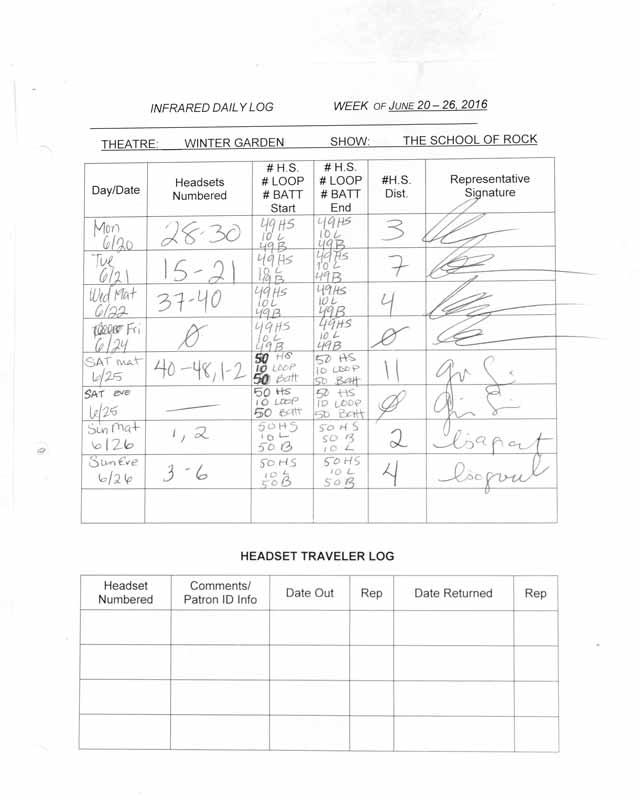 INFRARED DAILY LOG WEEK OF JUNE 20 – 26, 2016
THEATRE: WINTER GARDEN SHOW: THE SCHOOL OF ROCK
Day/Date
Headsets
Numbered
# H.S.
# LOOP
# BATT
Start
# H.S.
# LOOP
# BATT
End
#H.S.
Dist.
Representative
Signature
Mon
6/20
28-30
49HS
10 L
49B
49HS
10 L
49B
3
Tue
6/21
15-21
49HS
10 L
49B
49HS
10 L
49B
7
Wed Mat
6/22
37-40
49HS
10L
49B
49HS
10L
49B
4
Fri
6/24
Ø
49HS
10L
49B
49HS
10L
49B
Ø
SAT mat
6/25
40-48, 1-2
50 HS
10 LOOP
50 Batt
50 HS
10 LOOP
50 Batt
11
SAT eve
6/25
50 HS
10 LOOP
50 Batt
50 HS
10 LOOP
50 Batt
Ø
Sun Mat
6/26
1, 2
50HS
10 L
50 B
50HS
50 B
10 L
2
Sun Eve
6/26
3-6
50HS
10 L
50B
50HS
10 L
50B
4
HEADSET TRAVELER LOG
Headset
Numbered
Comments/
Patron ID Info
Date Out
Rep
Date Returned
Rep